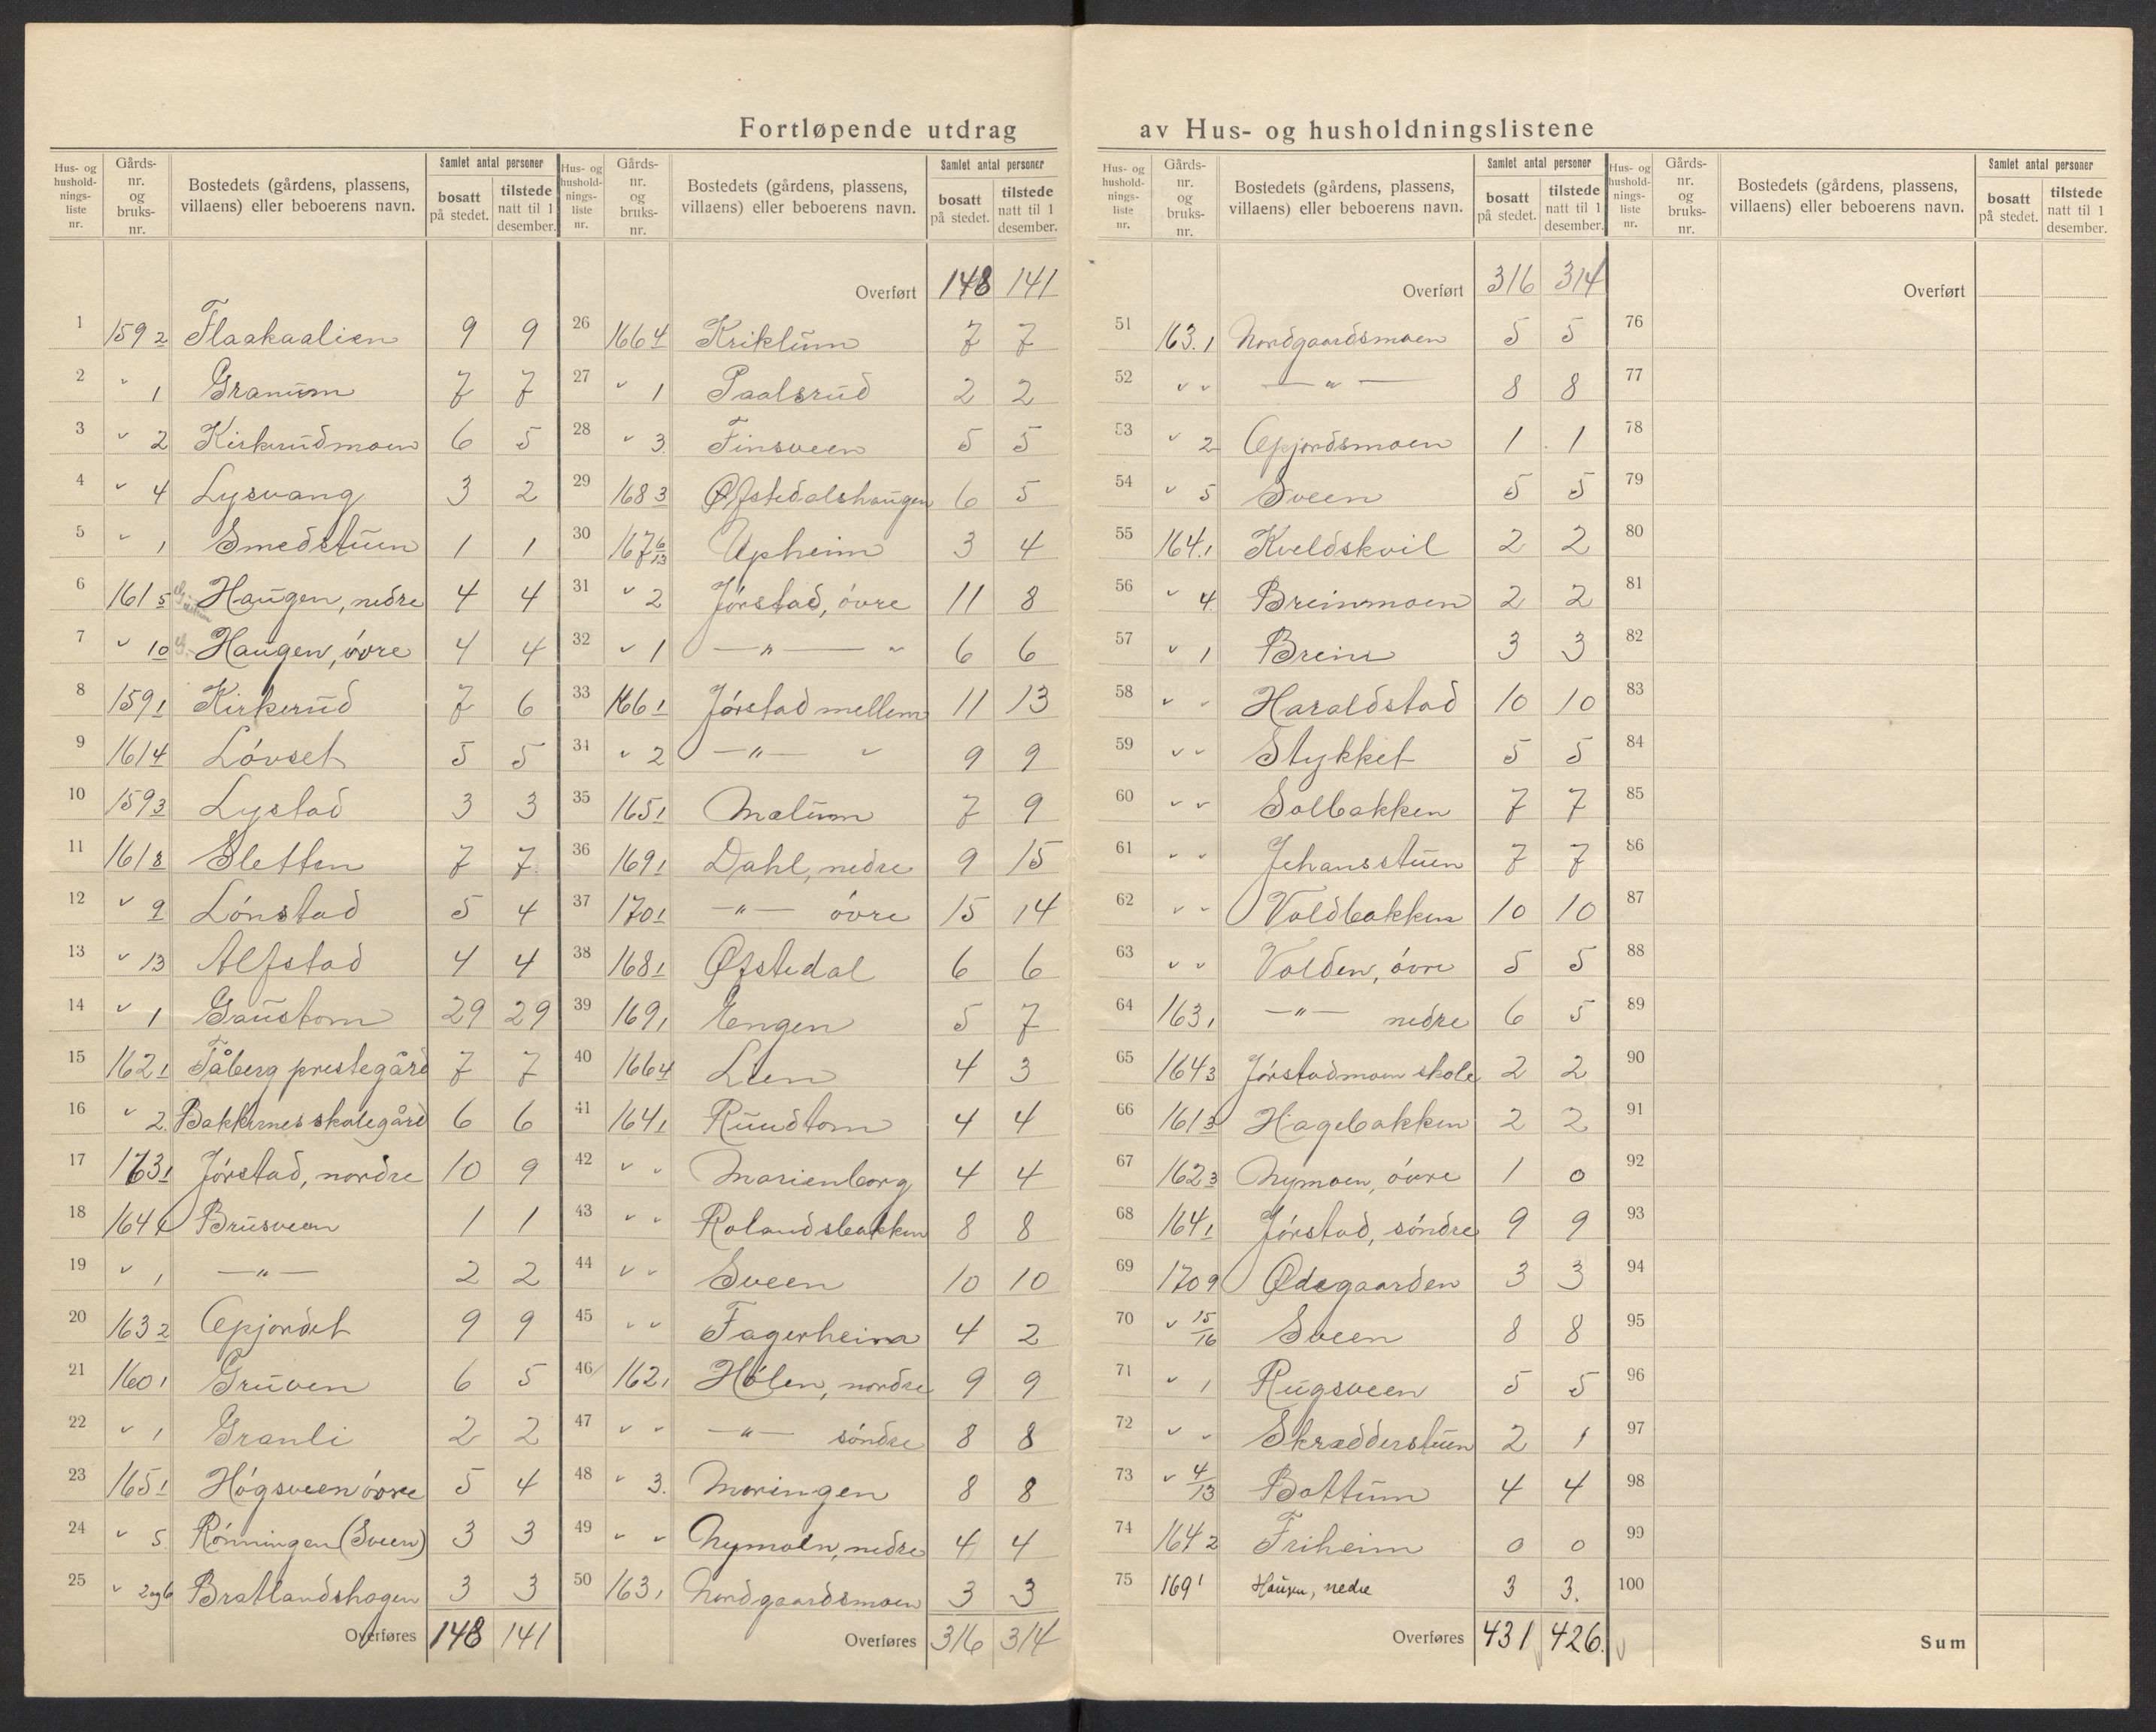 Fortløpende utdrag av Hus- og husholdningslistene
Hus- og husholdnings-liste nr. | Gårds-nr. og bruks-nr. | Bostedets (gårdens, plassens, villaens) eller beboerens navn. | Samlet antal personer | bosatt på stedet. | tilstede natt til 1 desember.
1 159 2 Flaakaalien 9 9
2 " 1 Granum 7 7
3 " 2 Kirkerudmoen 6 5
4 " 4 Lysvang 3 2
5 " 1 Smedstuen 1 1
6 161 5 Haugen, nedre 4 4
7 " 10 Haugen, övre 4 4
8 159 1 Kirkerud 7 6
9 161 4 Lóvset 5 5
10 159 3 Lystad 3 3
11 161 8 Sletten 7 7
12 " 9 Lónstad 5 4
13 " 13 Alfstad 4 4
14 " 1 Gaustom 29 29
15 162 1 Tåberg prestegård 7 7
16 " 2. Bakkernes skolegård 6 6
17 163 1 Jórstad, nordre 10 9
18 164 1 Brusveen 1 1
19 " 1 — " — 2 2
20 163 2 Opjordet 9 9
21 160 1 Gruven 6 5
22 " 1 Granli 2 2
23 165 1 Hógsveen óvre 5 4
24 " 5 Rónningen (Sveen) 3 3
25 " 2og6 Bratlandshagen 3 3
Overføres 148 141
Hus- og husholdnings-liste nr. | Gårds-nr. og bruks-nr. | Bostedets (gårdens, plassens, villaens) eller beboerens navn. | Samlet antal personer | bosatt på stedet. | tilstede natt til 1 desember.
Overført 148 141
26 166 4 Kriklum 7 7
27 " 1 Paalsrud 2 2
28 " 3. Finsveen 5 5
29 168 3 Øfstedalshaugen 6 5
30 167 6/13 Upheim 3 4
31 " 2 Jórstad, óvre 11 8
32 " 1 — " — " 6 6
33 166 1 Jórstad mellem 11 13
34 " 2 — " — " 9 9
35 165 1 Mælum 7 9
36 169 1 Dahl, nedre 9 15
37 170 1 — " — óvre 15 14
38 168 1 Øfstedal 6 6
39 169 1 Engen 5 7
40 166 4 Lien 4 3
41 164 1 Rundtom 4 4
42 " " Marienborg 4 4
43 " " Rolandsbakken 8 8
44 " " Sveen 10 10
45 " " Fagerheim 4 2
46 162 1 Hólen, nordre 9 9
47 " " — " — sóndre 8 8
48 " 3. Moringen 8 8
49 " " Nymoen, nedre 4 4
50 163 1 Nordgaardsmoen 3 3
Overføres 316 314
Hus- og husholdnings-liste nr. | Gårds-nr. og bruks-nr. | Bostedets (gårdens, plassens, villaens) eller beboerens navn. | Samlet antal personer | bosatt på stedet. | tilstede natt til 1 desember.
Overført 316 314
51 163. 1 Nordgaardsmoen 5 5
52 " " — " — 8 8
53 " 2 Opjordsmoen 1 1
54 " 5 Sveen 5 5
55 164. 1 Kveldskvil 2 2
56 " 4. Breinmoen 2 2
57 " 1 Brein 3 3
58 " " Haraldstad 10 10
59 " " Stykket 5 5
60 " " Solbakken 7 7
61 " " Jehansstuen 7 7
62 " " Voldbakken 10 10
63 " " Volden, óvre 5 5
64 163 1 — " — nedre 6 5
65 164 3 Jórstadmoen skole 2 2
66 161 3 Hagebakken 2 2
67 162 3 Nymoen, óvre 1 0
68 164 1 Jórstad, sóndre 9 9
69 170 9 Ødegaarden 3 3
70 " 15/16 Sveen 8 8
71 " 1 Rugsveen 5 5
72 " " Skrædderstuen 2 1
73 " 4/13 Bottum 4 4
74 164 2 Friheim 0 0
75 169 1 Haugen, nedre 3 3.
Overføres 431 426.
Hus- og husholdnings-liste nr. | Gårds-nr. og bruks-nr. | Bostedets (gårdens, plassens, villaens) eller beboerens navn. | Samlet antal personer | bosatt på stedet. | tilstede natt til 1 desember.
Overført
76
77
78
79
80
81
82
83
84
85
86
87
88
89
90
91
92
93
94
95
96
97
98
99
100
Sum